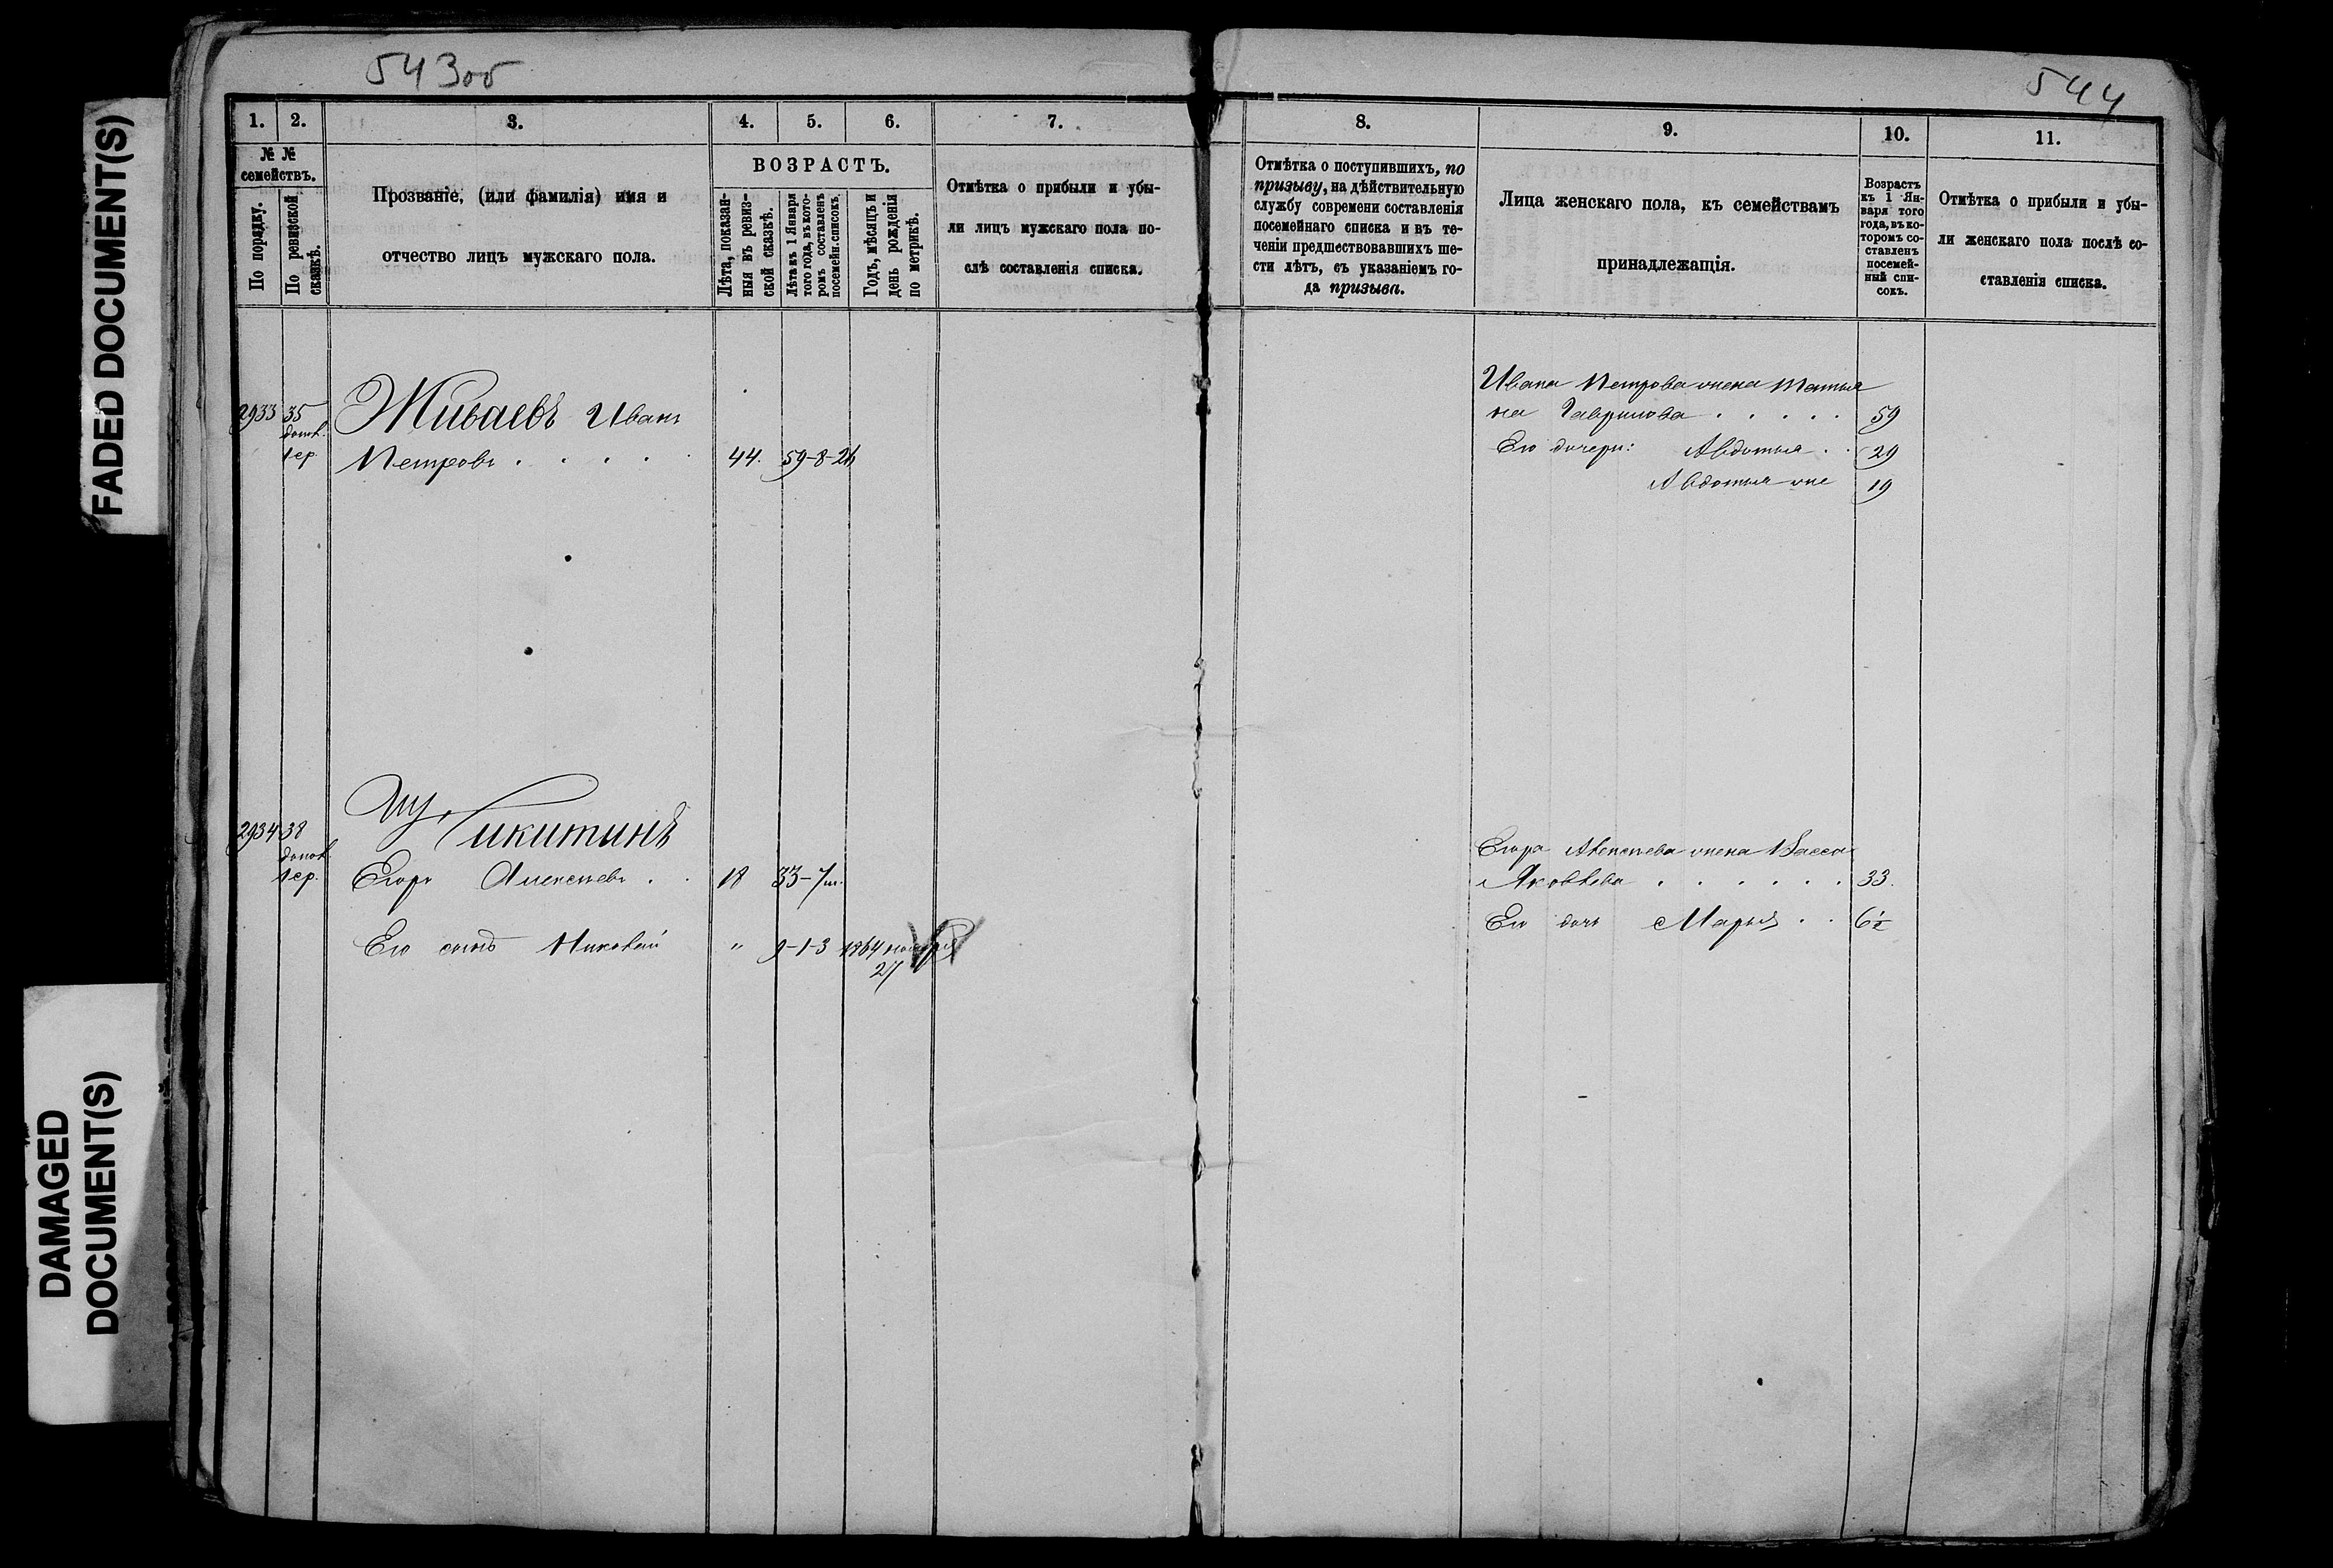 FADED DOCUMENT(S)
DAMAGED
DOCUMENT(S)
543об
1. 2. 3. 4. 5. 6. 7.
№ №
семействъ.
По порядку.
По ревизской
сказкѣ.
Прозваніе, (или фамилія) имя и
отчество лицъ мужскаго пола.
ВОЗРАСТЪ.
Лѣта, показан-
ныя въ ревиз-
ской сказкѣ.
Лѣта къ 1 Января
того года, въ кото-
ромъ составленъ
посемейн. списокъ.
Годъ, мѣсяцъ и
день рожденія
по метрикѣ.
Отмѣтка о прибыли и убы-
ли лицъ мужскаго пола по-
слѣ составленія списка.
2933 35 Живаевъ Иванъ
допол.
1 ср. Петровъ . . . . . 44. 59-8-26
2934 38 Никитинъ
допол.
1 ср. Егоръ Алексѣевъ . . 18 33-7м.
Его сынъ Николай " 9-1-3 1864 ноября
27
544
8. 9. 10. 11.
Отмѣтка о поступившихъ, по
призыву, на дѣйствительную
службу современи составленія
посемейнаго списка и въ те-
ченіи предшествовавшихъ ше-
сти лѣтъ, съ указаніемъ го-
да призыва.
Лица женскаго пола, къ семействамъ
принадлежащія.
Возрастъ
къ 1 Ян-
варя того
года, въ ко-
торомъ со-
ставленъ
посемей-
ный спи-
сокъ.
Отмѣтка о прибыли и убы-
ли женскаго пола послѣ со-
ставленія списка.
Ивана Петрова жена Татья
на Гаврилова . . . . . 59
Его дочери: Авдотья . . 29
Авдотья же 19
Егора Алексѣева жена Васса
Яковлева . . . . . . 33.
Его дочь Марья . . 6½